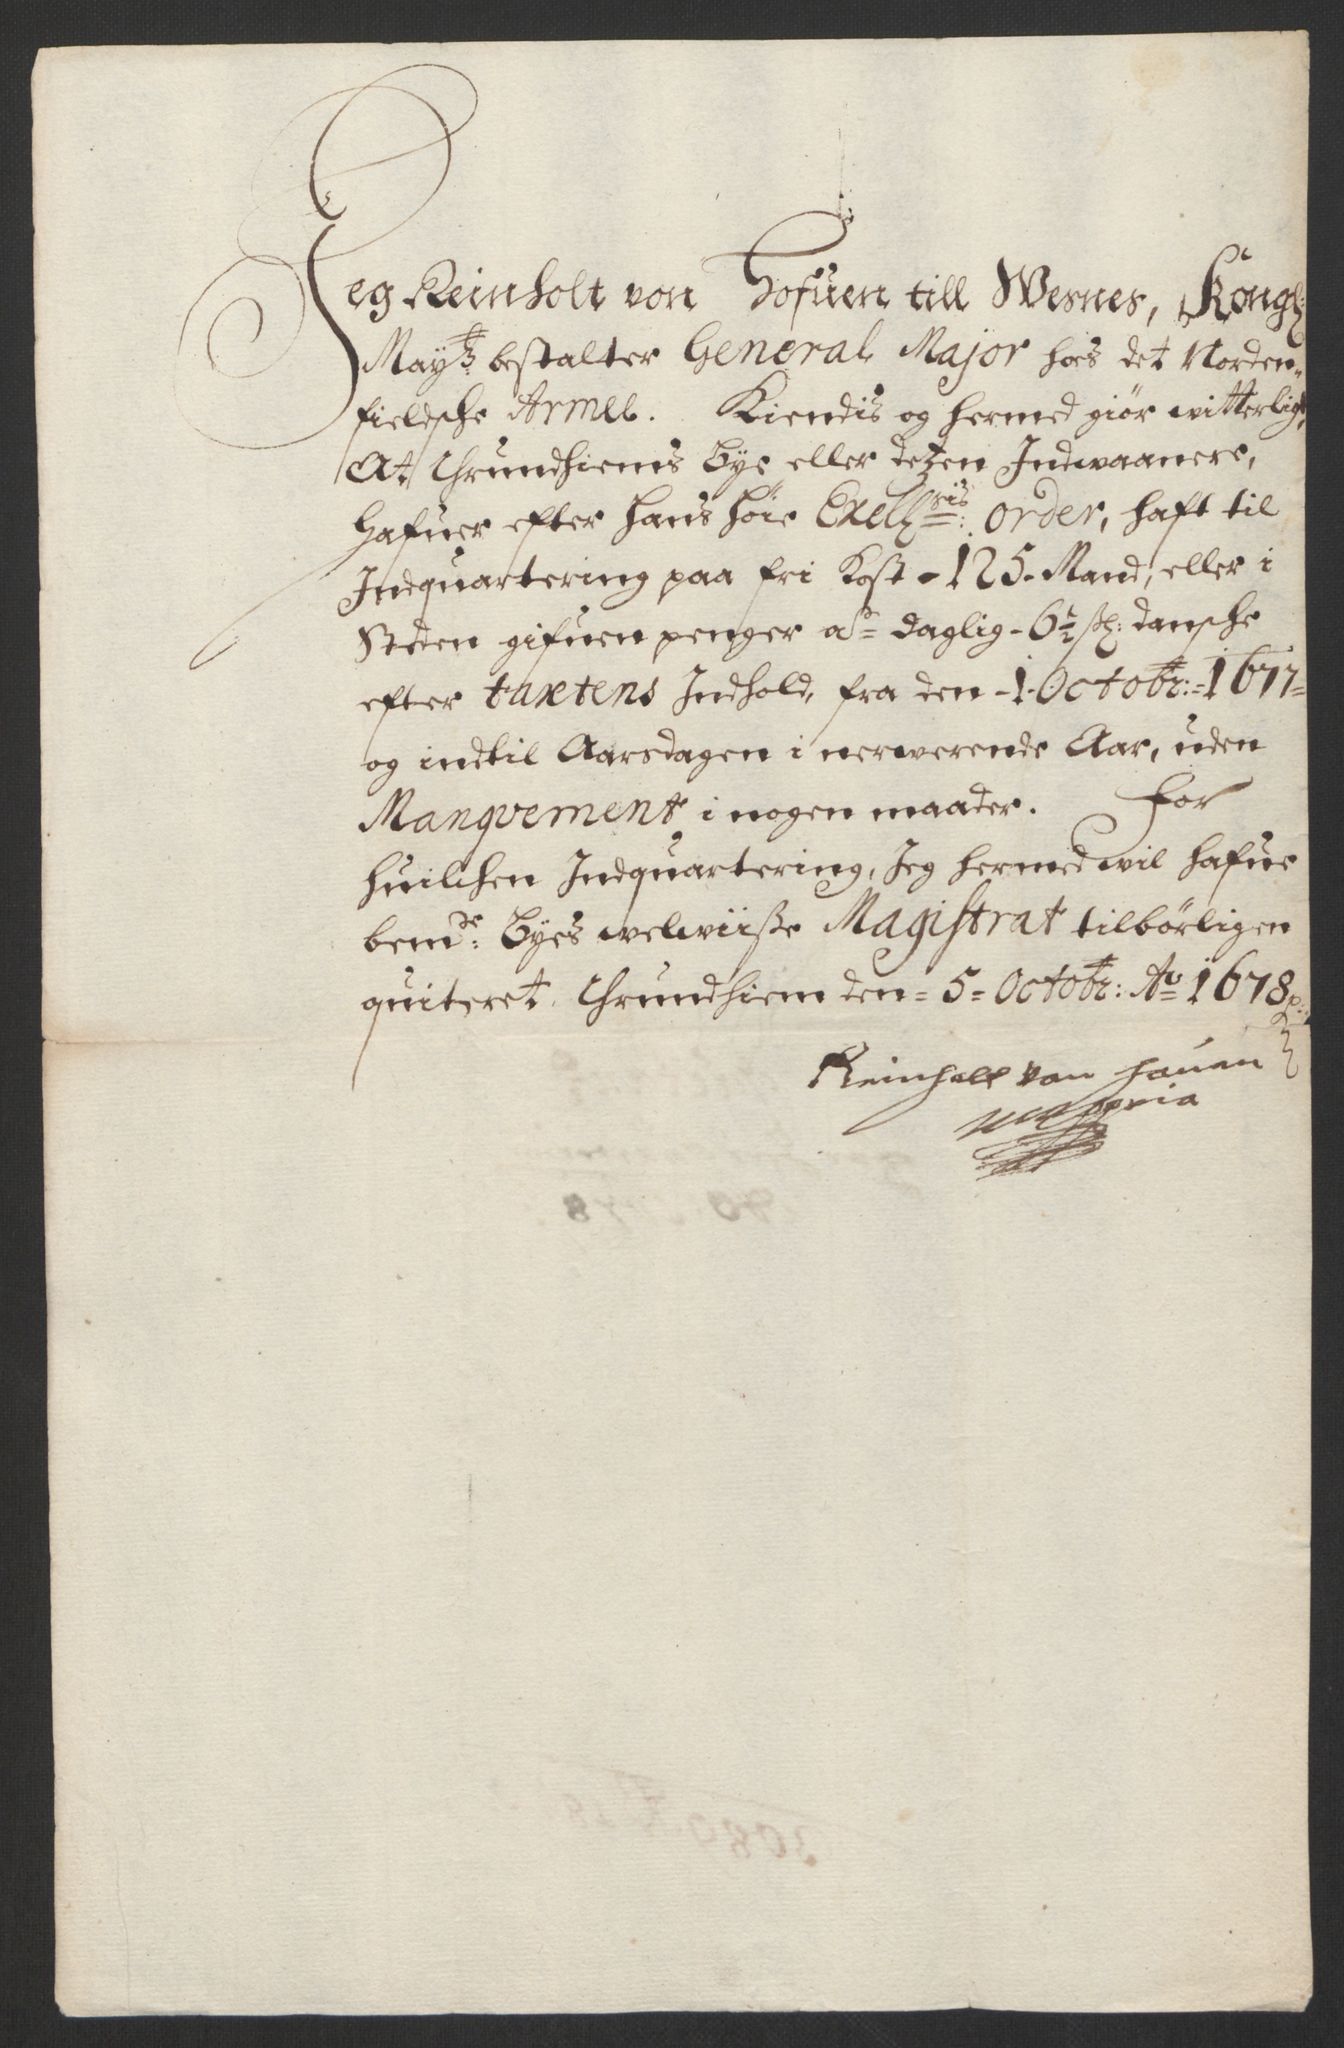 Jeg Reinholt von Hofuen till Wesnes, Kongl:
Maytz bestalter General Major hoes det Norden„
fieldsche Armee. Kiendis og hermed giør witterligt,
At Thrundhiems Bye eller detzen Indwaanere,
Hafuer efter hans høie Excellris: order, haft til
Indquartering paa fri Kost - 125 - Mand, eller i
Steden gifuen penger a daglig - 6½ sk: dansche
efter taxtens Indhold, fra den - 1 - Octobr: - 1677 =
og indtil Aarsdagen i nerwerende Aar, uden
Manqvement i nogen maader. For
huilchen Indquartering, Jeg hermed wil hafue
bemte: Byes welwiisse Magistrat tilbørligen
quiteret. Thrundhiem den = 5 = Octobr: Ao 1678
Reinholt von Hauen
mppria